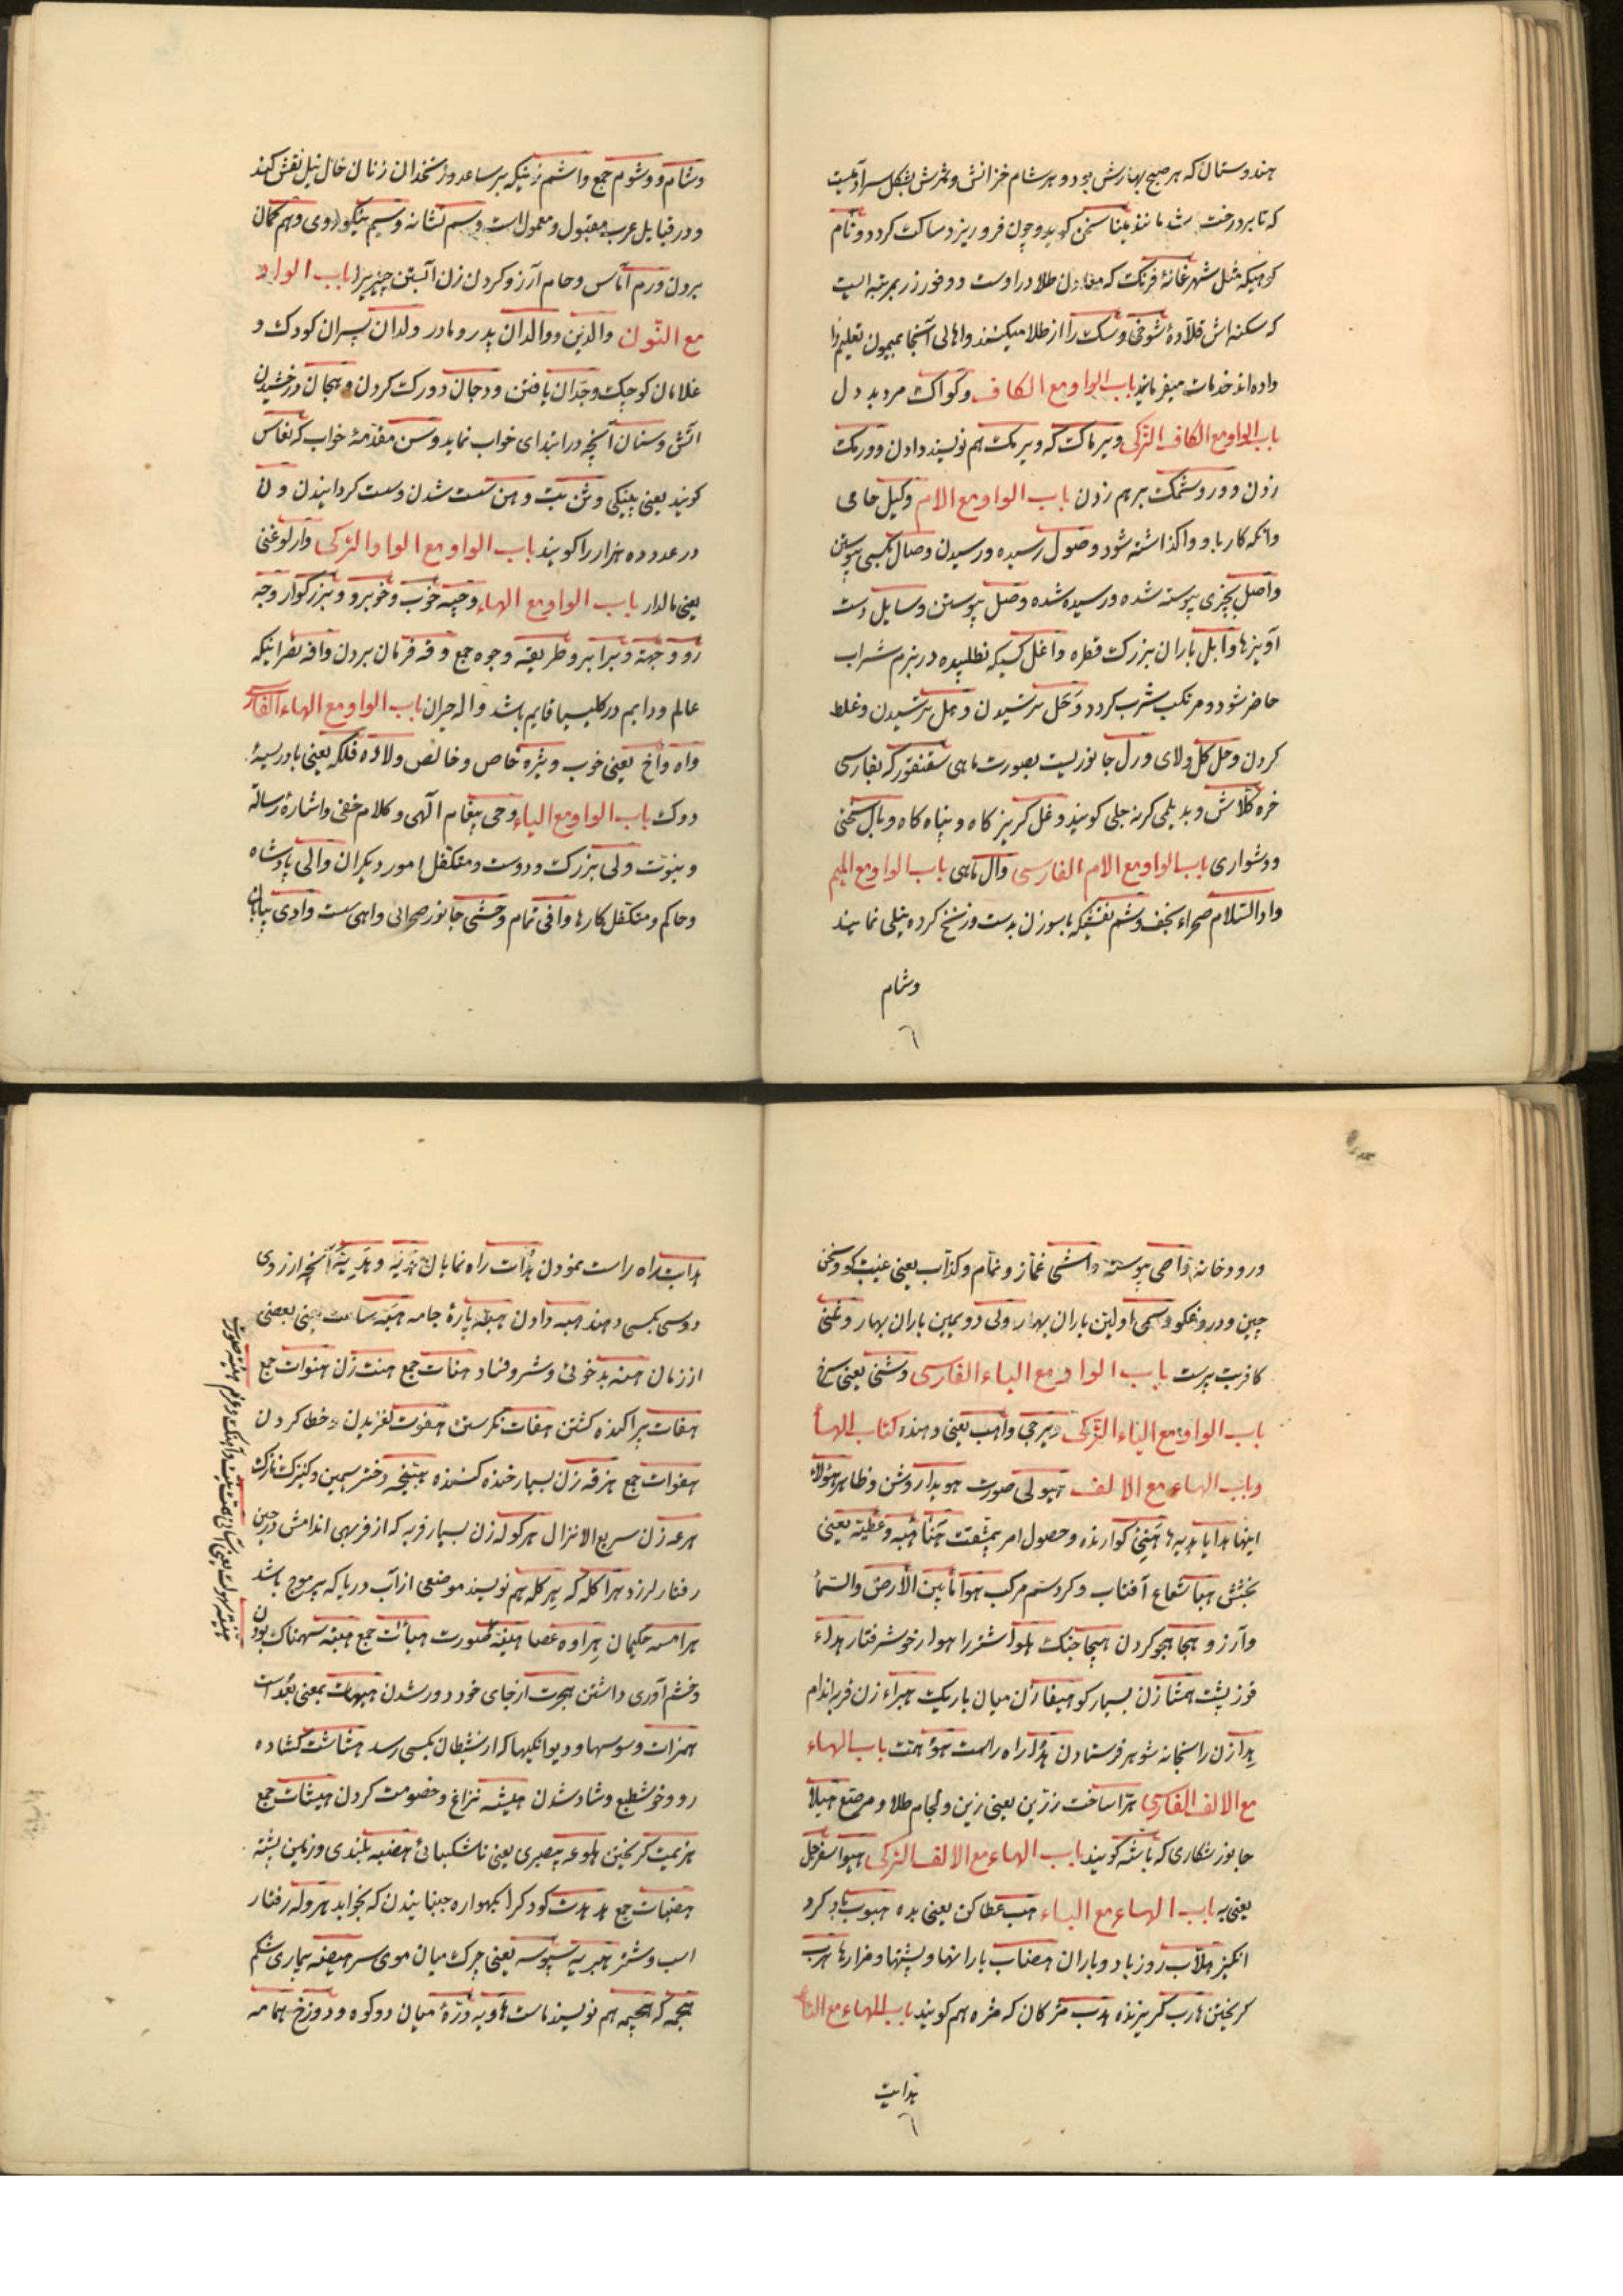 هندوستان که هر صبح بهارش بود و هر شام خزانش و ثمرش بشکل سر آدمیست
که تا بر درخت باشد مانند مینا سخن کوید و چون فرو ریزد ساکت کردد و نام
کوهیکه مثل شهر غانهٔ فرنک که معادن طلا در اوست و وفور زر بمرتبه ایست
که سکنه اش قلادهٔ شوخی و سک را از طلا میکنند و اهالی آنجا میمون تعلیم را
داده اند خدمات میفرمایند باب الواو مع الکاف وکواک مرد بد دل
باب الواو مع الکاف الترکی ویرماک که ویرمک هم نویسند دادن و ورمک
زدن و وروشمک برهم زدن باب الواو مع الام وکیل حامی
وانکه کار باو واکذاشته شود وصول رسیده و رسیدن وصال بکسی پیوستن
واصل بچیزی پیوسته شده و رسیده شده وصل پیوستن وسایل دست
آویزها وابل باران بزرک قطره واغل کسیکه نطلبیده در بزم شراب
حاضر شود و مرتکب شرب کردد وجل ترسیدن وهل ترسیدن و غلط
کردن وحل کل و لای ورل جانوریست بصورت ماهی سقنقور که بفارسی
خره کلاش و بدیلمی کرنه جلی کویند وغل کریز کاه و پناه کاه وبال سختی
و دشواری باب الواو مع الام الفارسی وال ماهی باب الواو مع المیم
وادالسلام صحراء نجف وشم نقشیکه با سوزن بدست و زنخ کرده نیلی نمایند
وشام
٦
وشام و وشوم جمع واشم زنیکه بر ساعد و زنخدان زنان خال نیل نقش کند
و در قبایل عرب مقبول و معمول است وسم نشانه وسیم نیکو روی وهم کمان
بردن ورم آماس وحام آرزو کردن زن آبستن چیزیرا باب الواو
مع النون والدین و والدان پدر و مادر ولدان پسران کودک و
غلامان کوچک وجدان یافتن ودجان دو رک کردن وهجان درخشیدن
اتش وسنان آنچه در ابتدای خواب نماید وسن مقدمهٔ خواب که نعاس
کویند یعنی پینکی وثن بت وهن سست شدن و سست کردانیدن ون
در عدد ده هزار را کویند باب الواو مع الواو الترکی وارلو غنی
یعنی مالدار باب الواو مع الهاء وجیه خوب و خوبرو و بزرکوار وجه
رو و جهة و برابر و طریقه وجوه جمع وقه فرمان بردن وافه نصرانیکه
عالم و دایم در کلیسیا قایم باشد واله حیران باب الواو مع الهاء الفارسی
واه واخ یعنی خوب ویژه خاص و خالص ولاده فلکه یعنی بادریسهٔ
دوک باب الواو مع الیاء وحی پیغام الهی و کلام خفی و اشارهٔ رسالة
و نبوت ولی بزرک و دوست و متکفل امور دیکران والی پادشاه
و حاکم و متکفل کارها وافی تمام وحشی جانور صحرائی واهی سست وادی بیابان
و رودخانه واصی پیوسته واشی غماز و نمام و کذاب یعنی غیبت کو و سخن
چین و دروغکو وسمی اولین باران بهار ولی دویمین باران بهار وثنی
کافر بت پرست باب الواو مع الیاء الفارسی وشنی یعنی سرخ
باب الواو مع الیاء الترکی ویرجی واهب یعنی دهنده کتاب الهأ
و باب الهاء مع الالف هیولی صورت هویدا روشن و ظاهر هؤلاء
اینها هدایا هدیه ها هنیئ کوارنده و حصول امر بیمشقت هنأ هبه و عطیه یعنی
بخشش هبا شعاع آفتاب و کرد سم مرکب هوا مابین الأرض والسمأ
و آرزو هجا هجو کردن هیجا جنک هلو آشتر را هوار خوش رفتار هداء
قوز پشت همشا زن بسیار کو هیفا زن میان باریک هبراء زن فربه اندام
هدا زن را بخانه شوهر فرستادن هدا راه راست هؤ همت باب الهاء
مع الالف الفارسی هرا ساخت زرین یعنی زین و لجام طلا و مرصع هیلا
جانور شکاری که باشه کویند باب الهاء مع الالف الترکی هیوا سفرجل
یعنی به باب الهاء مع الباء هب عطا کن یعنی بده هبوب باد کرد
انکیز هلاب روز باد و باران هضاب بارانها و پشتها و مزارها هرب
کریختن هارب کریزنده هدب مژکان که مژه هم کویند باب الهاء مع التأ
هدایت
٦
هدایت راه راست نمودن هدات راه نمایان هدیه و هدیة آنچه از روی
دوسی بکسی دهند هبه دادن هبقه پارهٔ جامه هبة ساعت یعنی بعضی
از زمان هنه بدخوئی و شر و فساد هنات جمع هنت زن هنوات جمع
هفات پراکنده کشتن هفات نکرستن هفوت لغزیدن و خطا کردن
هفوات جمع هزقه زن بسیار خنده کننده هبیخه دختر سیمین و کنیزک نازک
هرعه زن سریع الانزال هرکوله زن بسیار فربه که از فربهی اندامش در حین
رفتار لرزد هراکله که هرکله هم نویسند موضعی از آب دریا که پر موج باشد
هرامسه حکیمان هراوه عصا هیئة صورت هیأت جمع هیبة سهمناک بودن
و خشم آوری داشتن هجرت از جای خود دور شدن هیهات بمعنی بعد است
همزات وسوسها و دیوانکیها که از شیطان بکسی رسد هشاشت کشاده
رو و خوشطبع و شاد شدن هیشه نزاع و خصومت کردن هیشات جمع
هزیمت کریختن هلوعه بیصبری یعنی ناشکیبائی هضبه بلندی و زمین پشته
هضبات جمع هدهدت کودک را بکهواره جنبانیدن که بخوابد هروله رفتار
اسب و شتر هبریه سبوسه یعنی چرک میان موی سر هیضه بیماری شکم
هجمه که هجیمه هم نویسند ماست هاویه درهٔ میان دو کوه و دوزخ هامه